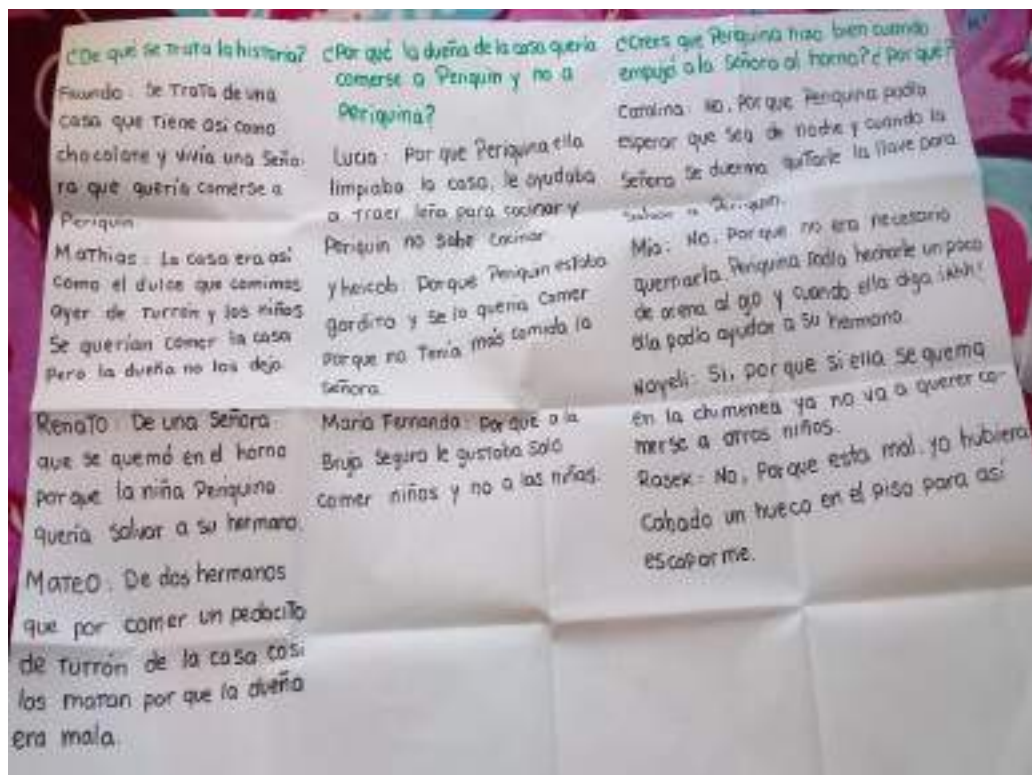 ¿De qué se trata la historia?
Facundo: Se Trata de una
casa que Tiene asi como
chocolate y vivía una Seño-
ra que quería comerse a
Periquin
Mathias: La casa era asi
como el dulce que comimos
ayer de Turrón y los niños
Se querian comer la casa
Pero la dueña no los dejo.
Renato: De una Señora
que se quemó en el horno
porque la niña Periquina
quería salvar a su hermano.
Mateo: De dos hermanos
que por comer un pedacito
de Turrón de la casa casi
los matan por que la dueña
era mala.
¿Por qué la dueña de la casa quería
comerse a Periquin y no a
Periquina?
Lucia: Por que Periquina ella
limpiaba la casa, le ayudaba
a traer leña para cocinar y
Periquin no sabe cocinar
yheicob: Porque Periquin estaba
gordito y se lo quería comer
Porque no Tenía más comida la
Señora.
Maria Fernanda: por que a la
Bruja Seguro le gustaba solo
comer niños y no a las niñas.
¿Crees que Periquina hizo bien cuando
empujó a la Señora al horno? ¿Por qué?
Carolina: No, Por que Periquina podía
esperar que sea de noche y cuando la
Señora Se duerma quitarle la llave para
salvar a Periquin.
Mia: No, Porque no era necesario
quemarla. Periquina Podía hecharle un poco
de arena al ojo y cuando ella diga
ella podía ayudar a su hermano.
Nayeli: Si, Por que si ella se quema
en la chimenea ya no va a querer co-
merse a otros niños.
Rosek: No, Porque esta mal. yo hubiera
Cabado un hueco en el piso para así
escaparme.